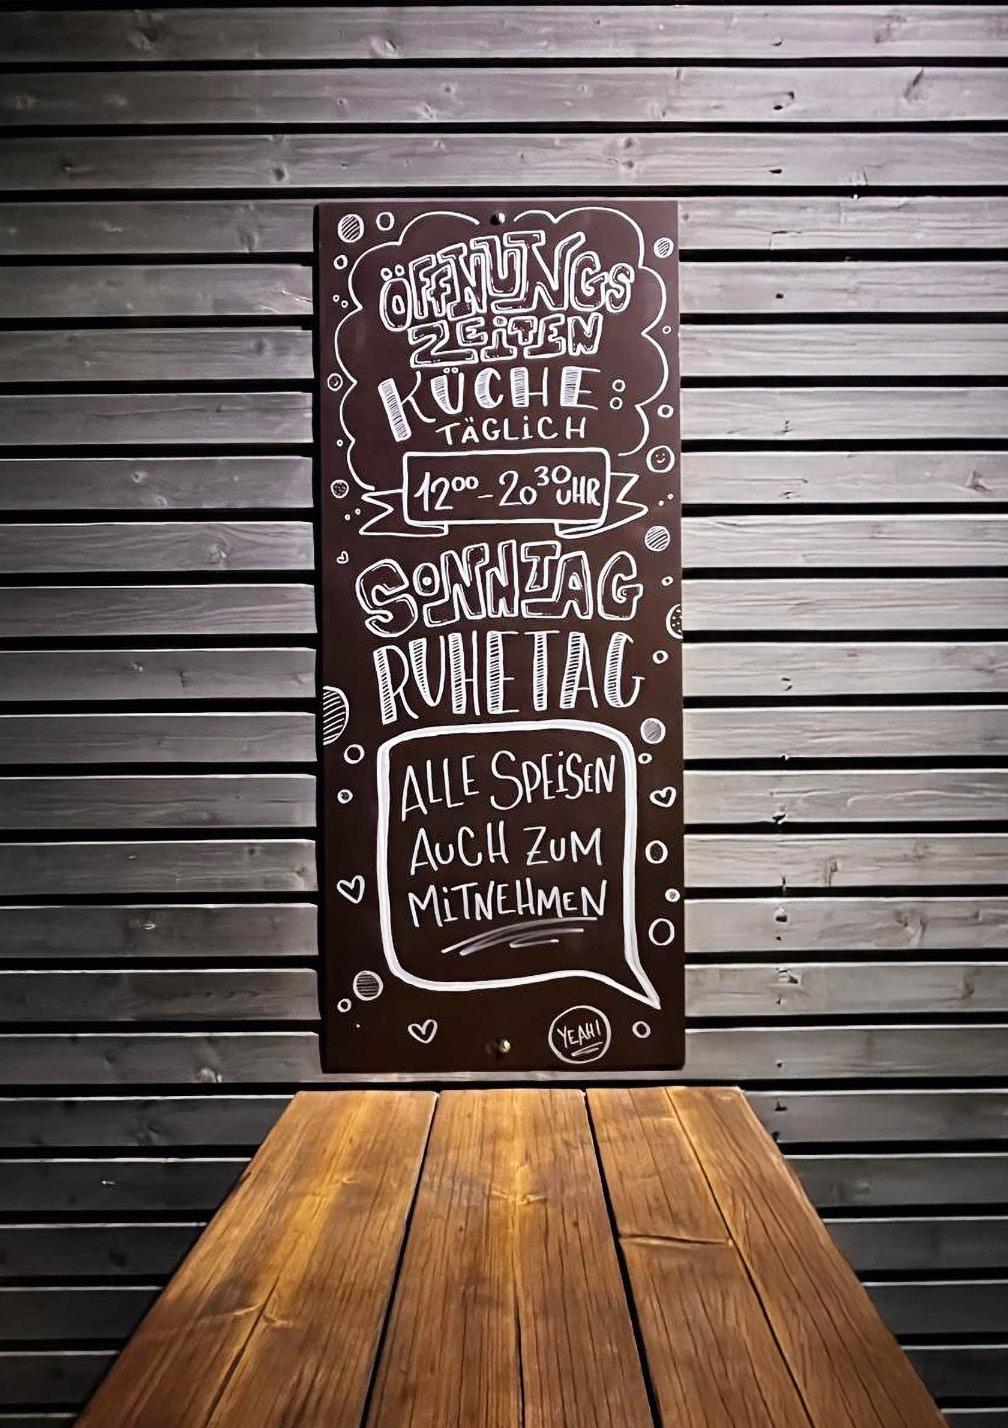 ÖFFNUNGS
ZEITEN
KÜCHE:
TÄGLICH
12⁰⁰ - 20³⁰ UHR
SONNTAG
RUHETAG
ALLE SPEISEN
AUCH ZUM
MITNEHMEN
YEAH!